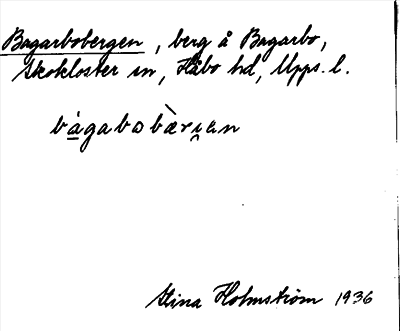 Bagarbobergen, berg å Bagarbo,
Skokloster sn, Håbo hd, Upps. l.
bágabobὰri̯en
Stina Holmström 1936